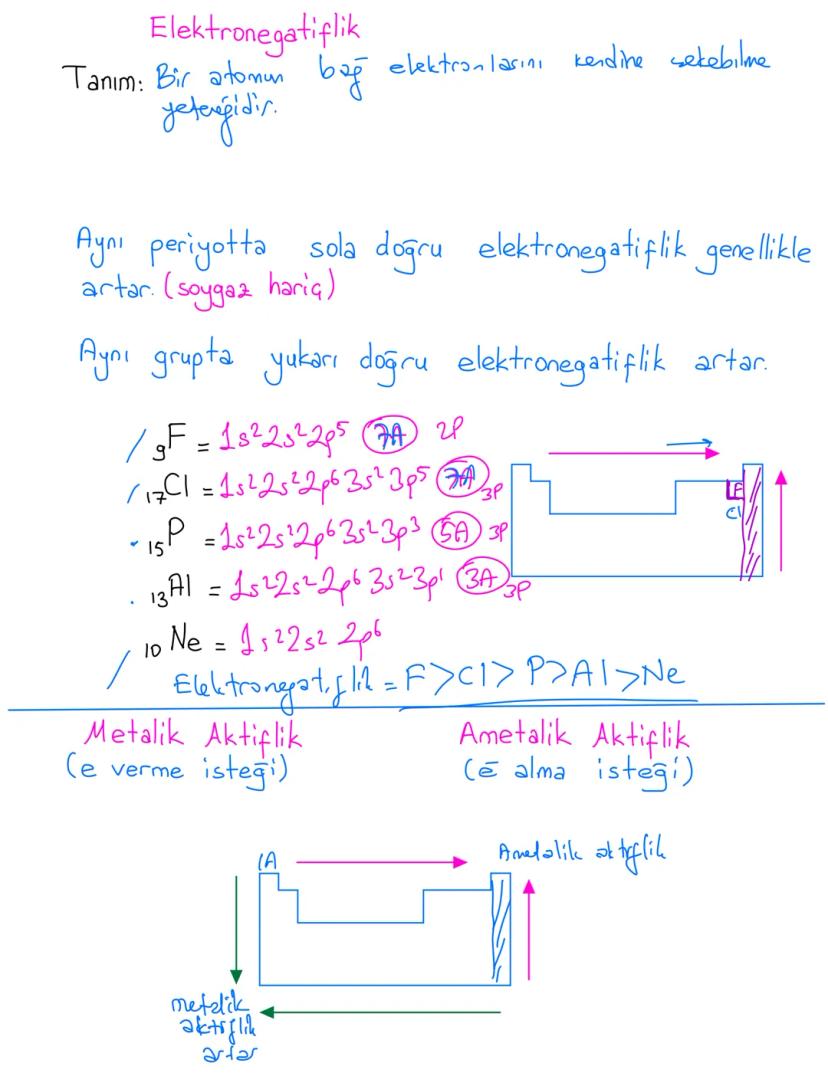 Elektronegatiflik
Tanım: Bir atomun bağ elektronlarını kendine çekebilme
yeteneğidir.
Aynı periyotta sola doğru elektronegatiflik genellikle
artar. (soygaz hariç)
Aynı grupta yukarı doğru elektronegatiflik artar.
₉F = 1s²2s²2p⁵ 7A 2P
₁₇Cl = 1s²2s²2p⁶3s²3p⁵ 7A 3P
₁₅P = 1s²2s²2p⁶3s²3p³ 5A 3P
₁₃Al = 1s²2s²2p⁶3s²3p¹ 3A 3P
F
Cl
₁₀Ne = 1s²2s²2p⁶
Elektronegatiflik = F>Cl>P>Al>Ne
Metalik Aktiflik
(e verme isteği)
Ametalik Aktiflik
(ē alma isteği)
1A
Ametalik aktiflik
metalik
aktiflik
artar